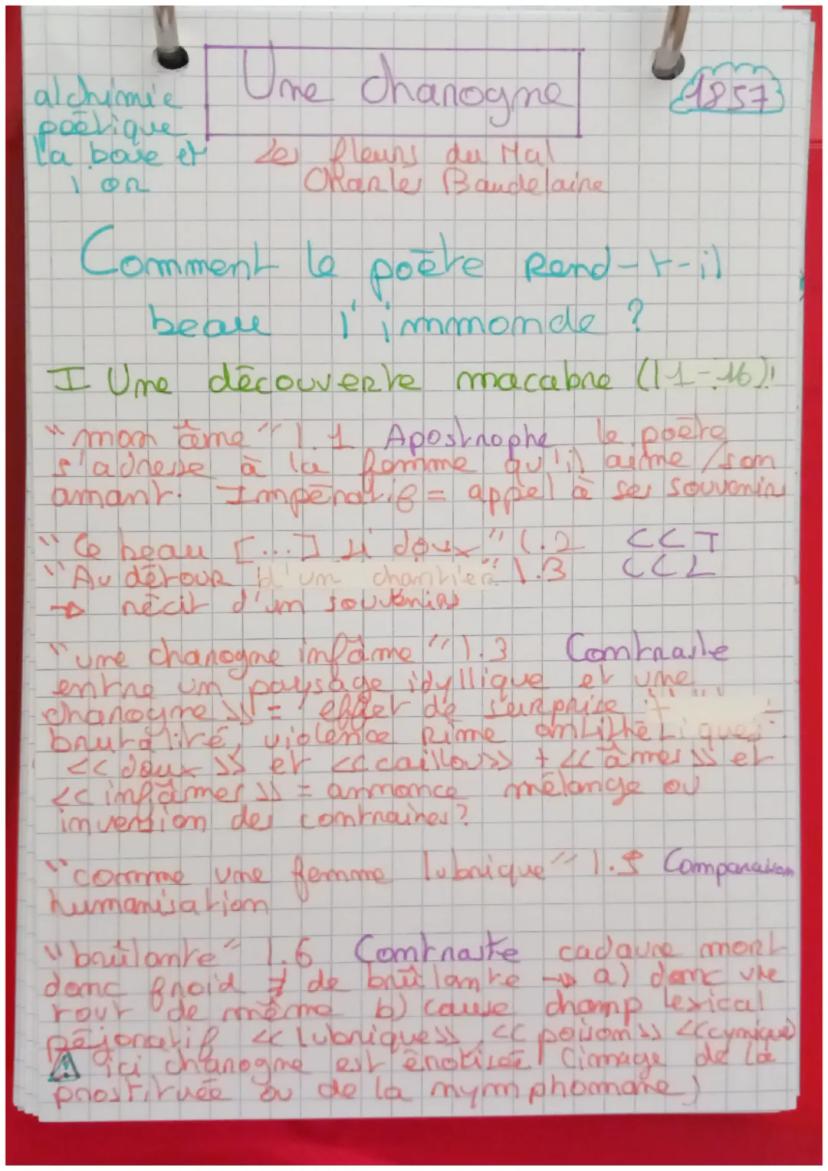 Une charogne
1857
alchimie
poétique
la boue et
l'or
Les fleurs du Mal
Charles Baudelaire
Comment le poète rend-t-il
beau l'immonde ?
I Une découverte macabre (l 1-16) :
"mon âme" l.1 Apostrophe le poète
s'adresse à la femme qu'il aime / son
amant. Impératif = appel à ses souvenir
"Ce beau [...] si doux" l.2 CCT
"Au détour d'un chantier" l.3 CCL
→ récit d'un souvenirs
"une charogne infâme" l.3 Contraste
entre un paysage idyllique et une
charogne >> = effet de surprise +
brutalité, violence rime antithétique :
<< doux >> et << caillou >> + << âmes >> et
<< infâmes >> = annonce mélange ou
invention des contraires ?
"comme une femme lubrique" l.5 Comparaison
humanisation
"brûlante" l.6 Contraste cadavre mort
donc froid ≠ de brûlante → a) donc vie
tout de même b) cause champ lexical
péjoratif << lubrique >>, << poison >> << cynique >>
⚠ ici charogne est érotisée (image de la
prostituée ou de la nymphomane)